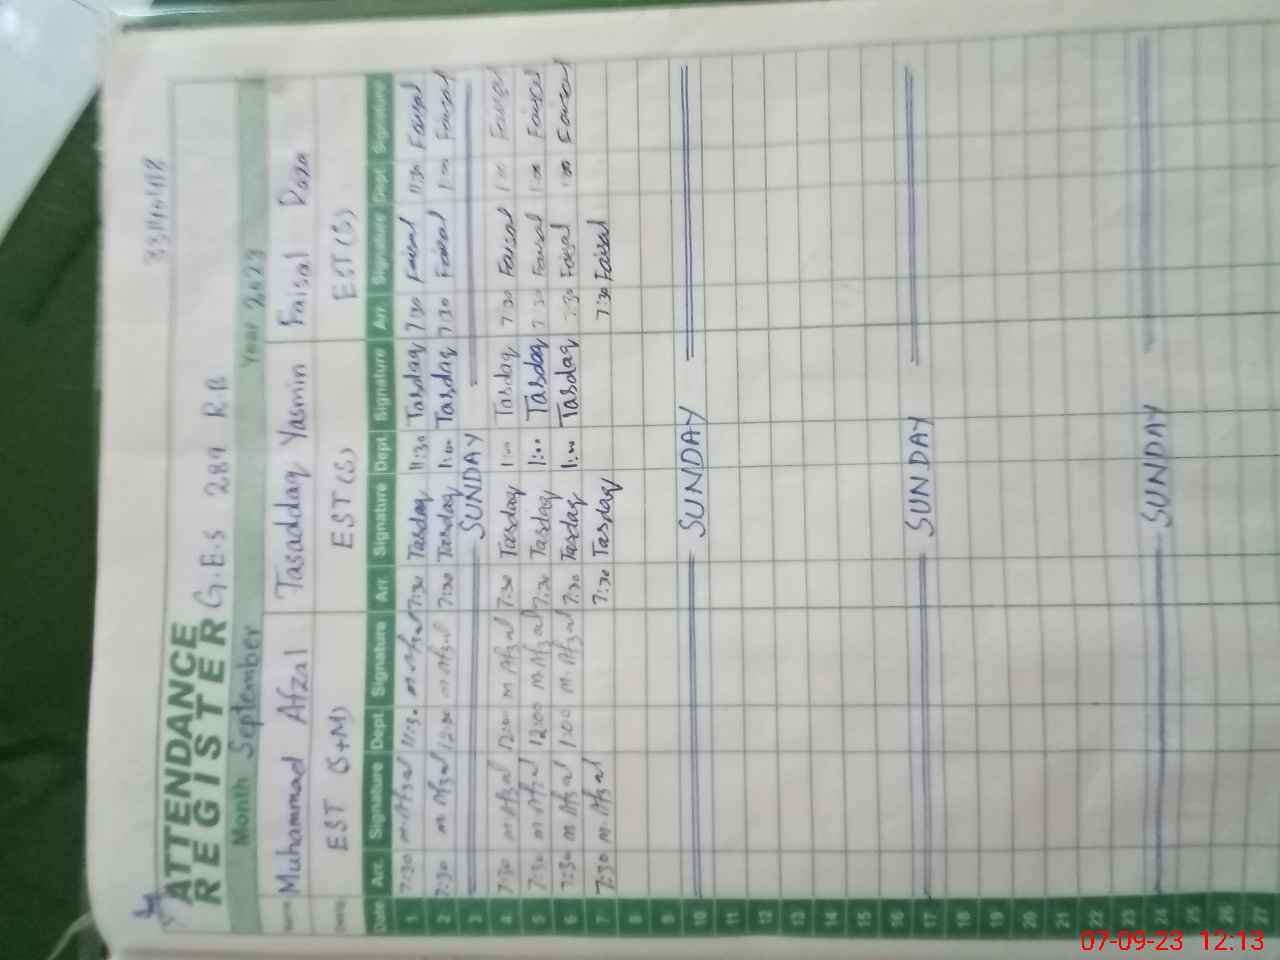 ATTENDANCE
REGISTER G.E.S 289 R.B
Month September Year 2023
Name Muhammad Afzal Tasaddaq Yasmin Faisal Raza
EST (S+M) EST (S) EST (S)
Date Arr. Signature Dept Signature Arr. Signature Dept. Signature Arr. Signature Dept. Signature
1 7:30 M.Afzal 11:30 M.Afzal 7:30 Tasdaq 11:30 Tasdaq 7:30 Faisal 11:30 Faisal
2 7:30 M Afzal 12:00 M Afzal 7:30 Tasdaq 1:00 Tasdaq 7:30 Faisal 1:00 Faisal
3 SUNDAY
4 7:30 M Afzal 12:00 M Afzal 7:30 Tasdaq 1:00 Tasdaq 7:30 Faisal 1:00 Faisal
5 7:30 M.Afzal 12:00 M Afzal 7:30 Tasdaq 1:00 Tasdaq 7:30 Faisal 1:00 Faisal
6 7:30 M Afzal 1:00 M.Afzal 7:30 Tasdaq 1:00 Tasdaq 7:30 Faisal 1:00 Faisal
7 7:30 M.Afzal 7:30 Tasdaq 7:30 Faisal
8
9
10 SUNDAY
11
12
13
14
15
16
17 SUNDAY
18
19
20
21
22
23
24 SUNDAY
25
26
27
07-09-23 12:13